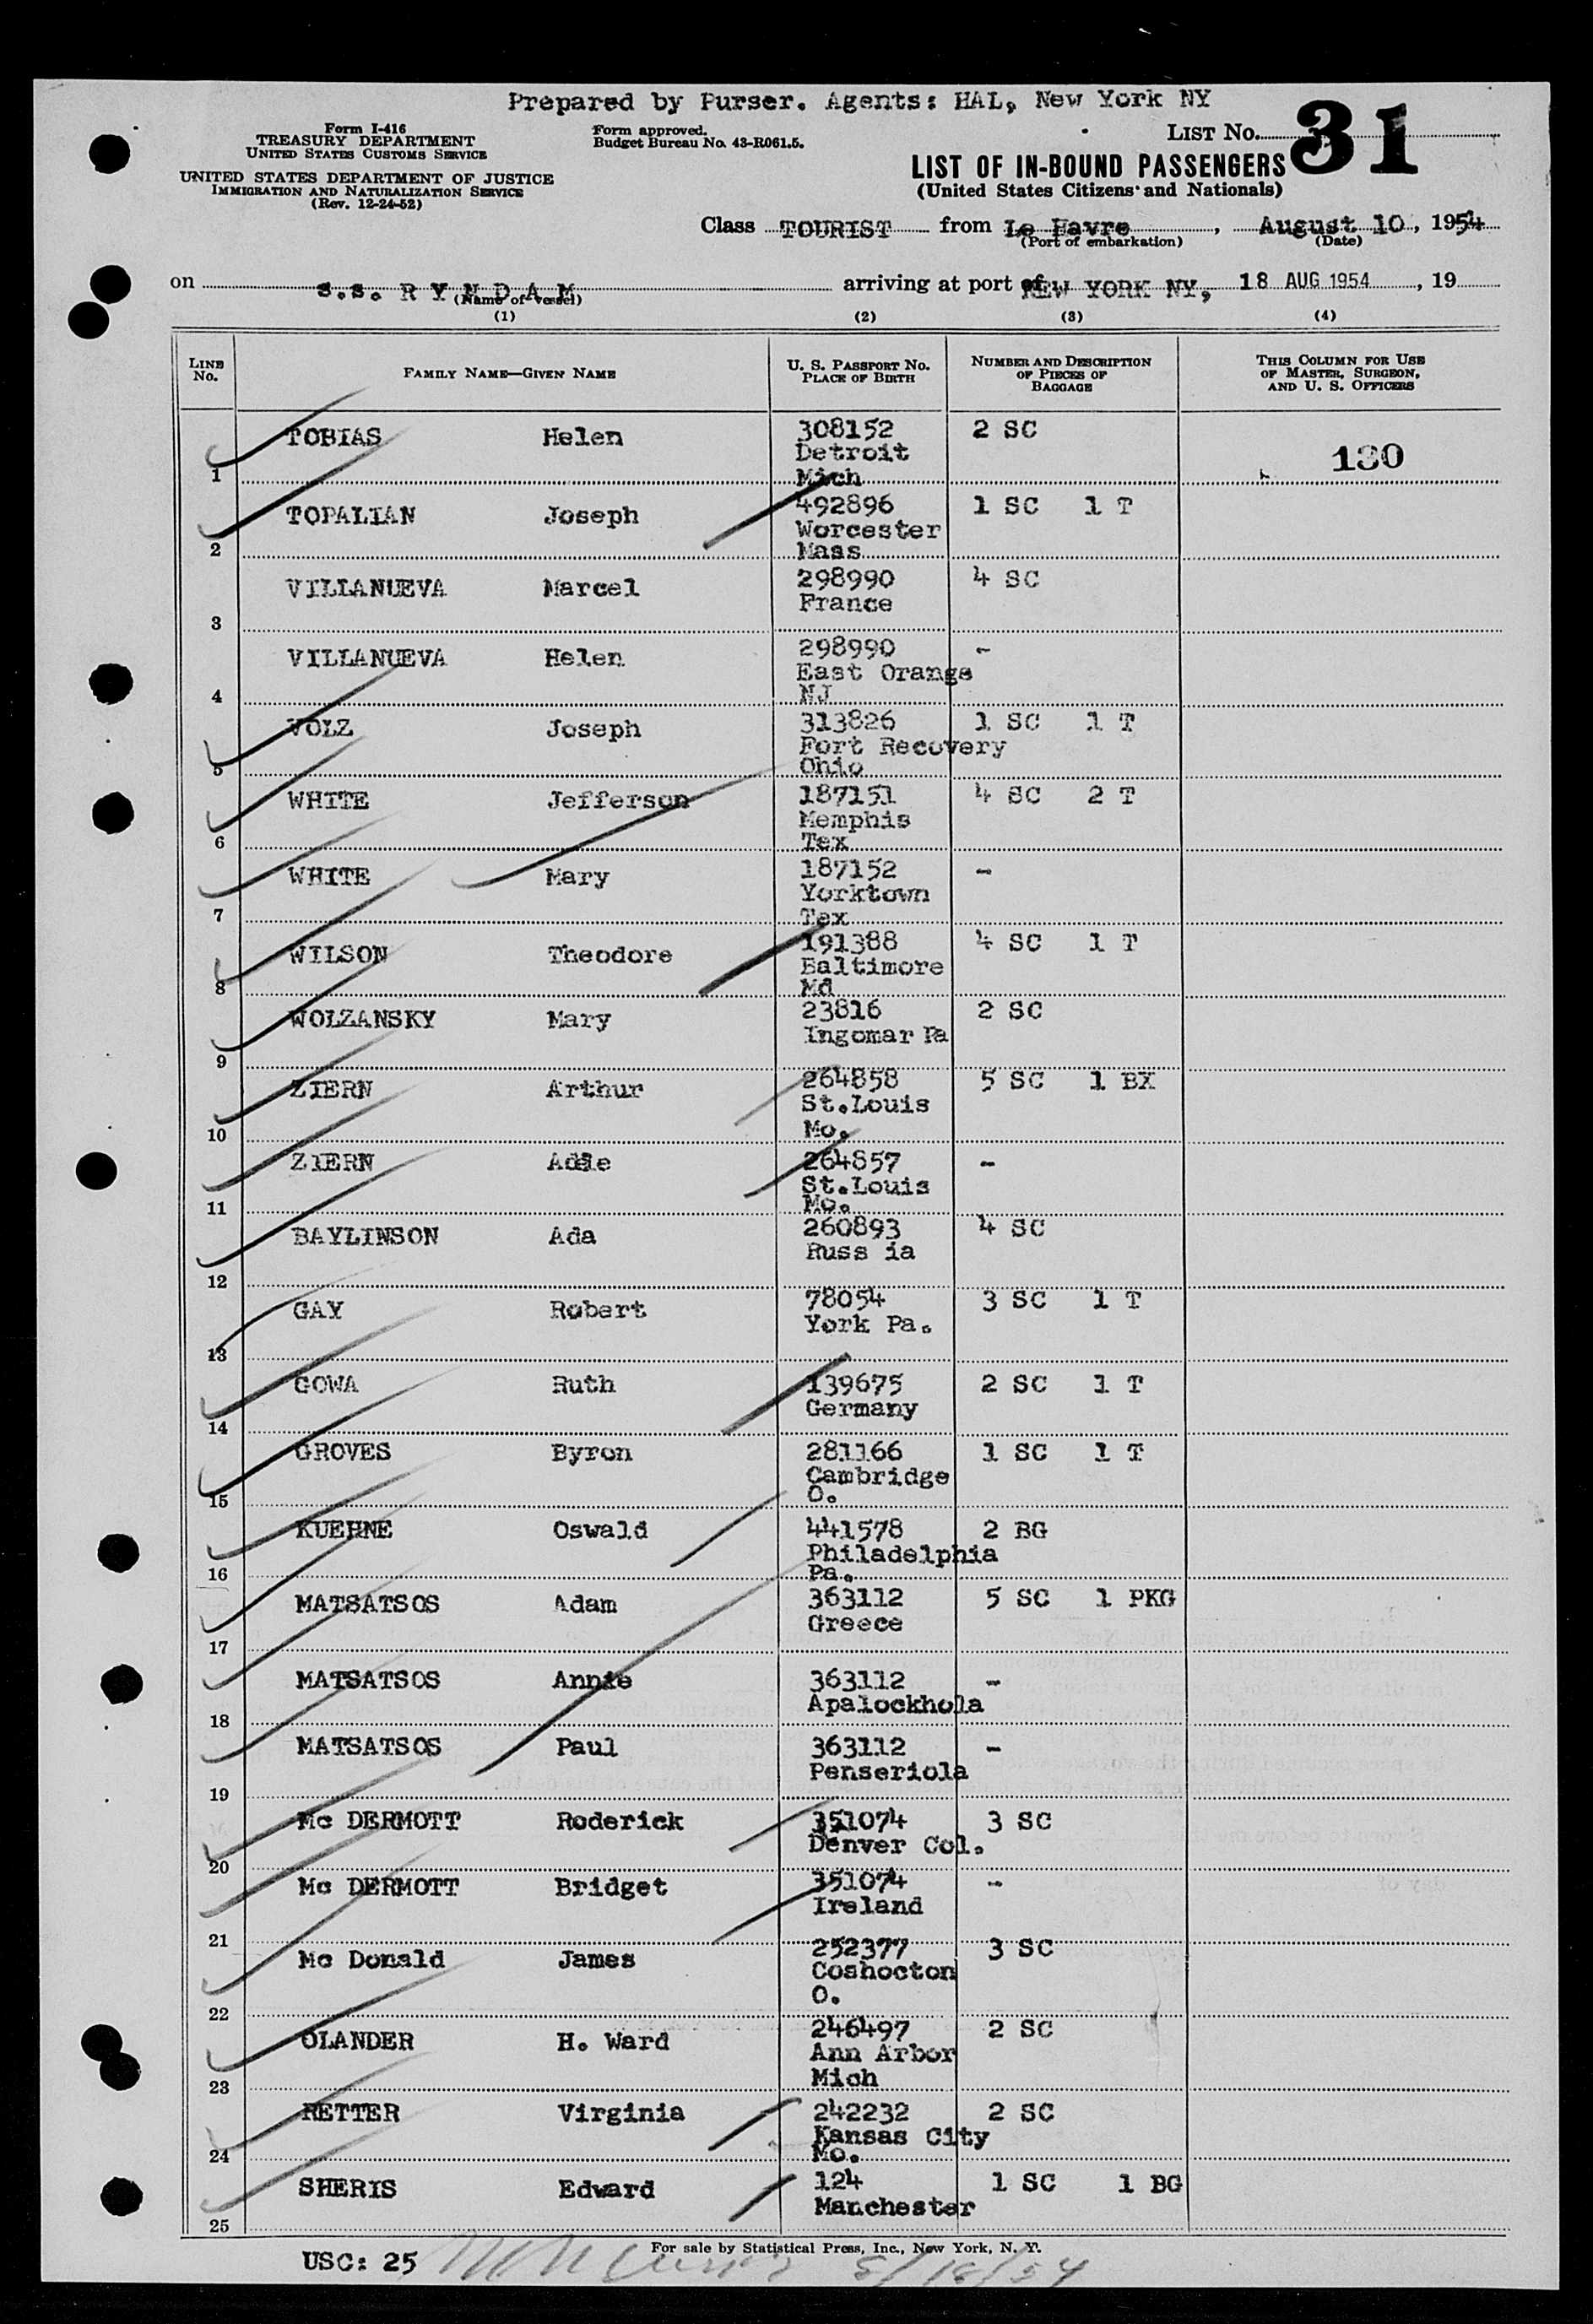 Prepared by Purser. Agents: HAL, New York NY
Form I-416
TREASURY DEPARTMENT
UNITED STATES CUSTOMS SERVICE
UNITED STATES DEPARTMENT OF JUSTICE
IMMIGRATION AND NATURALIZATION SERVICE
(Rev. 12-24-52)
Form approved.
Budget Bureau No. 43-R061.5.
LIST NO. 31
LIST OF IN-BOUND PASSENGERS
(United States Citizens and Nationals)
Class TOURIST from Le Havre, August 10, 1954
(Port of embarkation) (Date)
on s.s. R Y N D A M arriving at port of NEW YORK NY, 18 AUG 1954, 19
(Name of vessel)
(1) (2) (3) (4)
LINE NO. FAMILY NAME—GIVEN NAME U. S. PASSPORT NO. PLACE OF BIRTH NUMBER AND DESCRIPTION OF PIECES OF BAGGAGE THIS COLUMN FOR USE OF MASTER, SURGEON, AND U. S. OFFICERS
1 TOBIAS Helen 308152 2 SC 130
Detroit
Mich
2 TOPALIAN Joseph 492896 1 SC 1 T
Worcester
Mass
3 VILLANUEVA Marcel 298990 4 SC
France
4 VILLANUEVA Helen 298990 -
East Orange
NJ
5 VOLZ Joseph 313826 1 SC 1 T
Fort Recovery
Ohio
6 WHITE Jefferson 187151 4 SC 2 T
Memphis
Tex
7 WHITE Mary 187152 -
Yorktown
Tex
8 WILSON Theodore 191388 4 SC 1 T
Baltimore
Md
9 WOLZANSKY Mary 23816 2 SC
Ingomar Pa
10 ZIERN Arthur 264858 5 SC 1 BX
St.Louis
Mo.
11 ZIERN 264857 -
St.Louis
Mo.
12 BAYLINSON Ada 260893 4 SC
Russ ia
13 GAY Robert 78054 3 SC 1 T
York Pa.
14 GOWA Ruth 139675 2 SC 1 T
Germany
15 GROVES Byron 281166 1 SC 1 T
Cambridge
O.
16 KUEHNE Oswald 441578 2 BG
Philadelphia
Pa.
17 MATSATSOS Adam 363112 5 SC 1 PKG
Greece
18 MATSATSOS Annie 363112 -
Apalockhola
19 MATSATSOS Paul 363112 -
Penseriola
20 Mc DERMOTT Roderick 351074 3 SC
Denver Col.
21 Mc DERMOTT Bridget 351074 -
Ireland
22 Mc Donald James 252377 3 SC
Coshocton
O.
23 OLANDER H. Ward 246497 2 SC
Ann Arbor
Mich
24 RETTER Virginia 242232 2 SC
Kansas City
Mo.
25 SHERIS Edward 124 1 SC 1 BG
Manchester
For sale by Statistical Press, Inc., New York, N. Y.
USC: 25 8/18/54